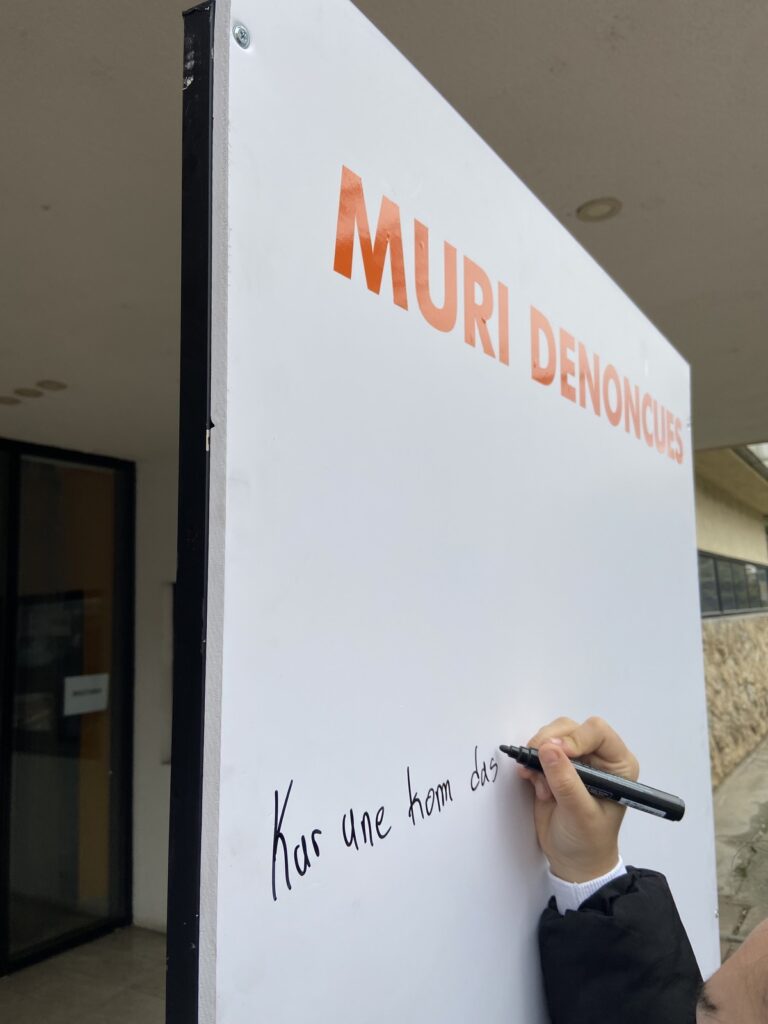 MURI DENONCUES
Kur une kom das